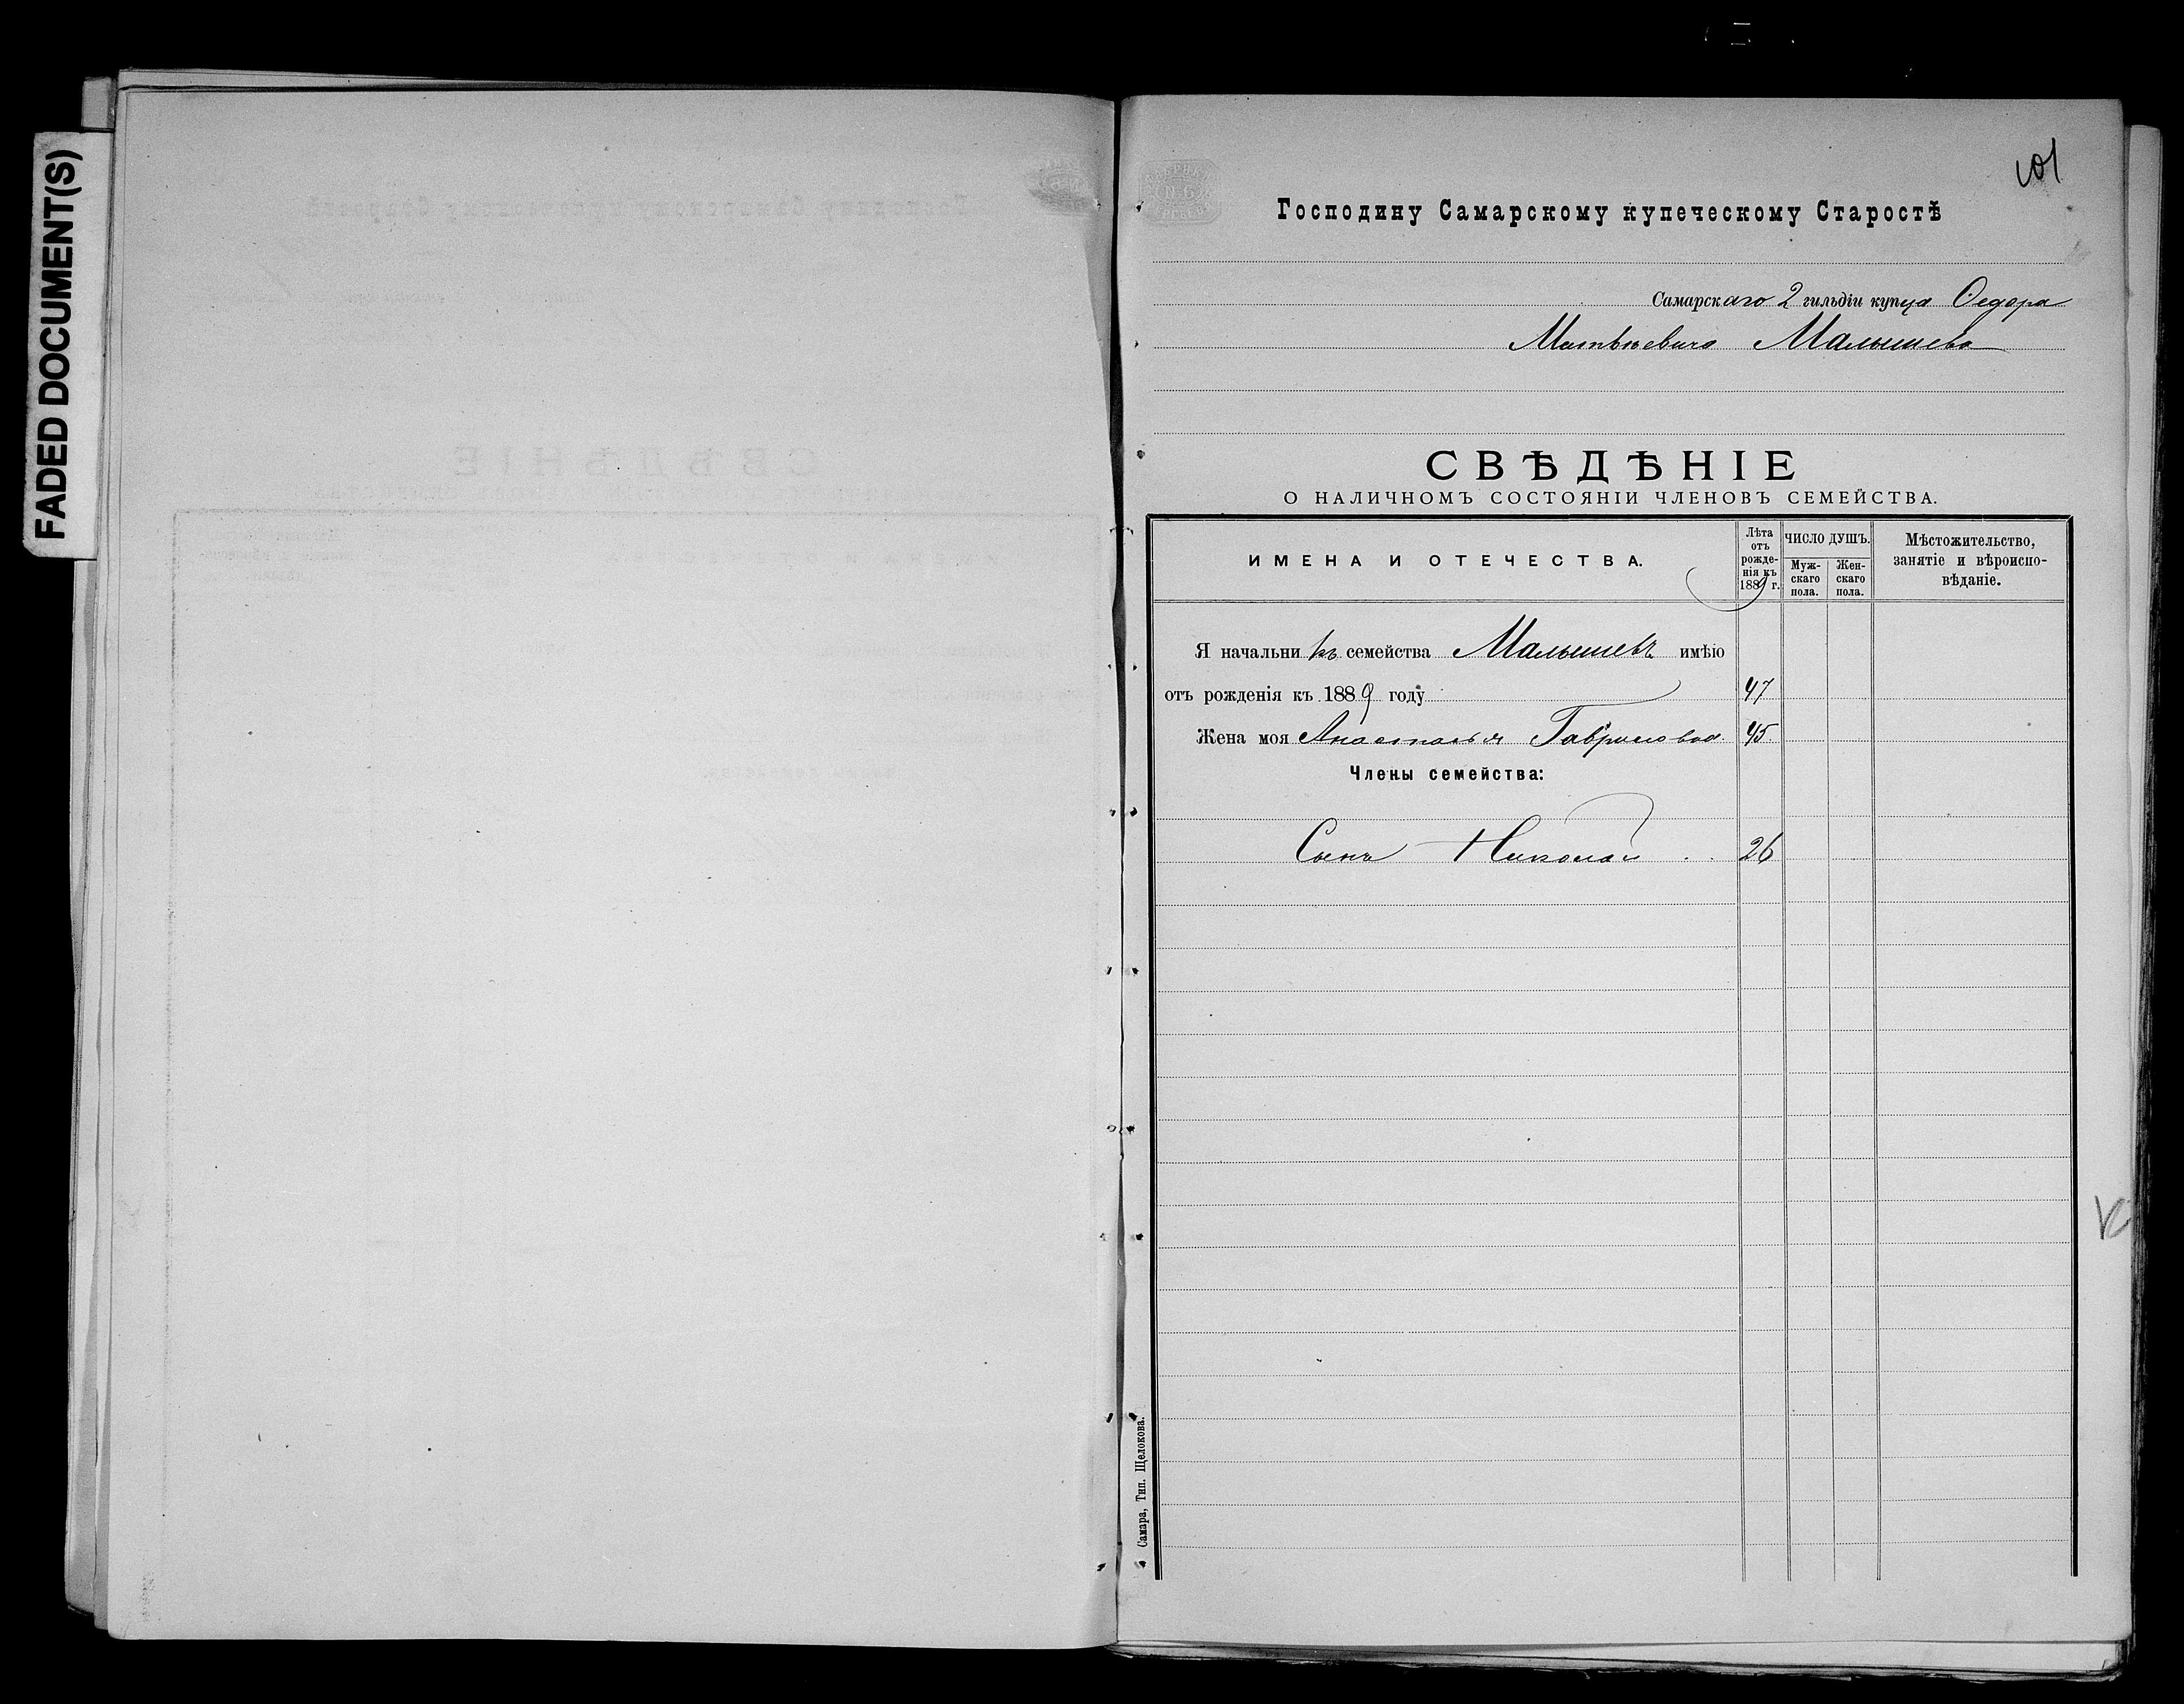 FADED DOCUMENT(S)
101
Господину Самарскому купеческому Старостѣ
Самарскаго 2 гильдіи купца Ѳедора
Матвѣевича Малышева
СВѢДѢНІЕ
О НАЛИЧНОМЪ СОСТОЯНІИ ЧЛЕНОВЪ СЕМЕЙСТВА.
ИМЕНА И ОТЕЧЕСТВА.
Лѣта отъ рожде-нія къ 1889 г.
ЧИСЛО ДУШЪ.
Муж-скаго пола.
Жен-скаго пола.
Мѣстожительство,
занятіе и вѣроиспо-
вѣданіе.
Я начальникъ семейства Малышевъ имѣю
отъ рожденія къ 1889 году 47
Жена моя Анастасья Гавриловна 45
Члены семейства:
Сынъ Николай 26
Самара, Тип. Щелокова.